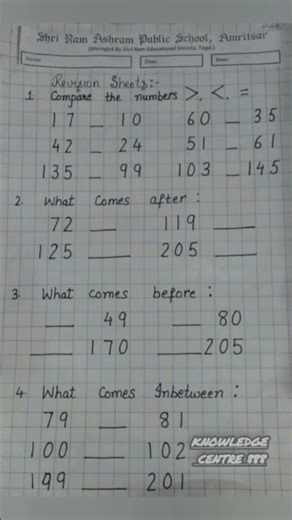 Shri Ram Ashram Public School, Amritsar
(Managed By Shri Ram Educational Society, Regd.)
Name: Class: Date:
Revision Sheets:-
1. Compare the numbers >, <, =
17 _ 10 60 _ 35
42 _ 24 51 _ 61
135 _ 99 103 _ 145
2. What comes after :
72 __ 119 __
125 __ 205 __
3. What comes before :
__ 49 __ 80
__ 170 __ 205
4. What comes Inbetween :
79 __ 81
100 __ 102
199 __ 201
KNOWLEDGE
CENTRE 888